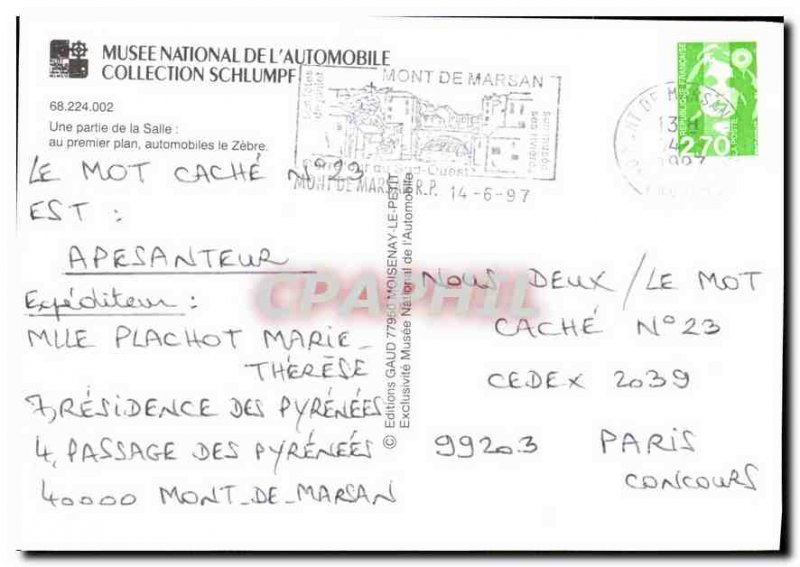 MUSEE NATIONAL DE L'AUTOMOBILE
COLLECTION SCHLUMPF
68.224.002
Une partie de la Salle :
au premier plan, automobiles le Zèbre.
MONT DE MARSAN
MONT DE MARSAN R.P. 14-6-97
REPUBLIQUE FRANÇAISE
2,70
LA POSTE
LE MOT CACHÉ N°23
EST :
APESANTEUR
Expéditeur :
MLLE PLACHOT MARIE-
THÉRÈSE
7, RÉSIDENCE DES PYRÉNÉES
4, PASSAGE DES PYRÉNÉES
40000 MONT-DE-MARSAN
© Editions GAUD 77950 MOISENAY-LE-PETIT
Exclusivité Musée National de l'Automobile
NOUS DEUX / LE MOT
CACHÉ N°23
CEDEX 2039
99203 PARIS
CONCOURS
CPAPHIL